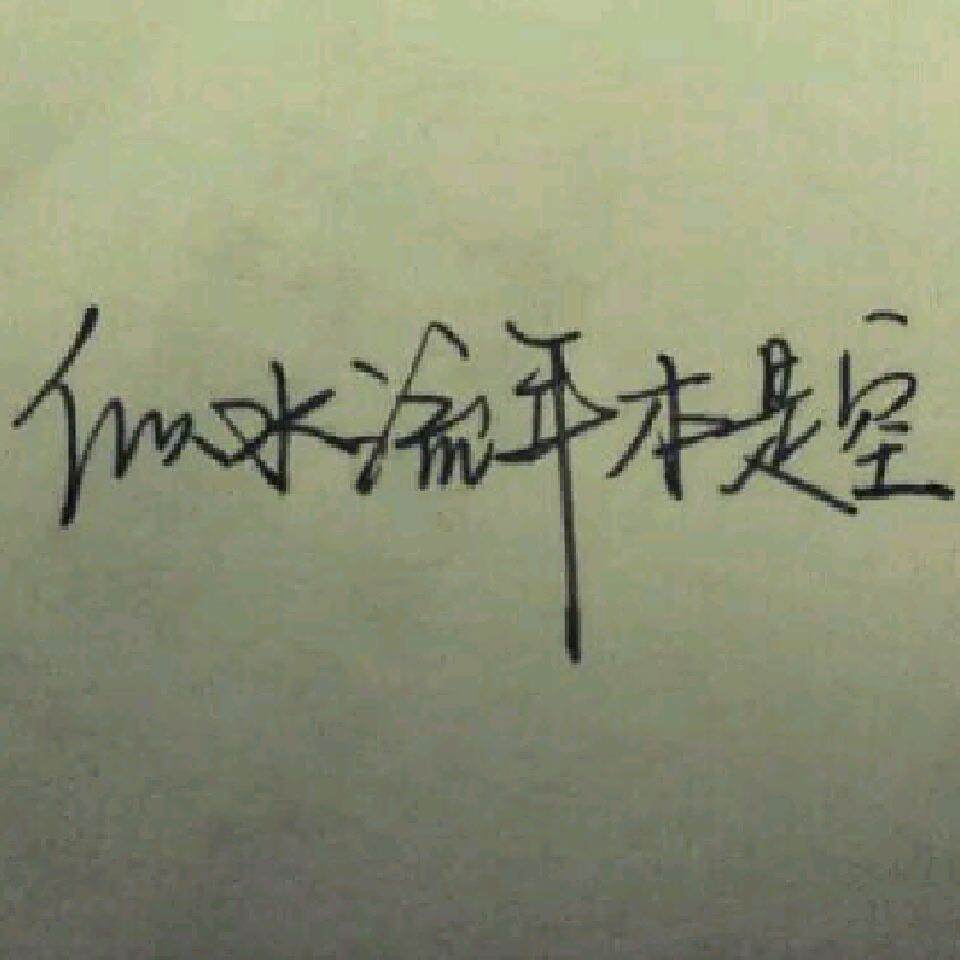 似水流年本是空